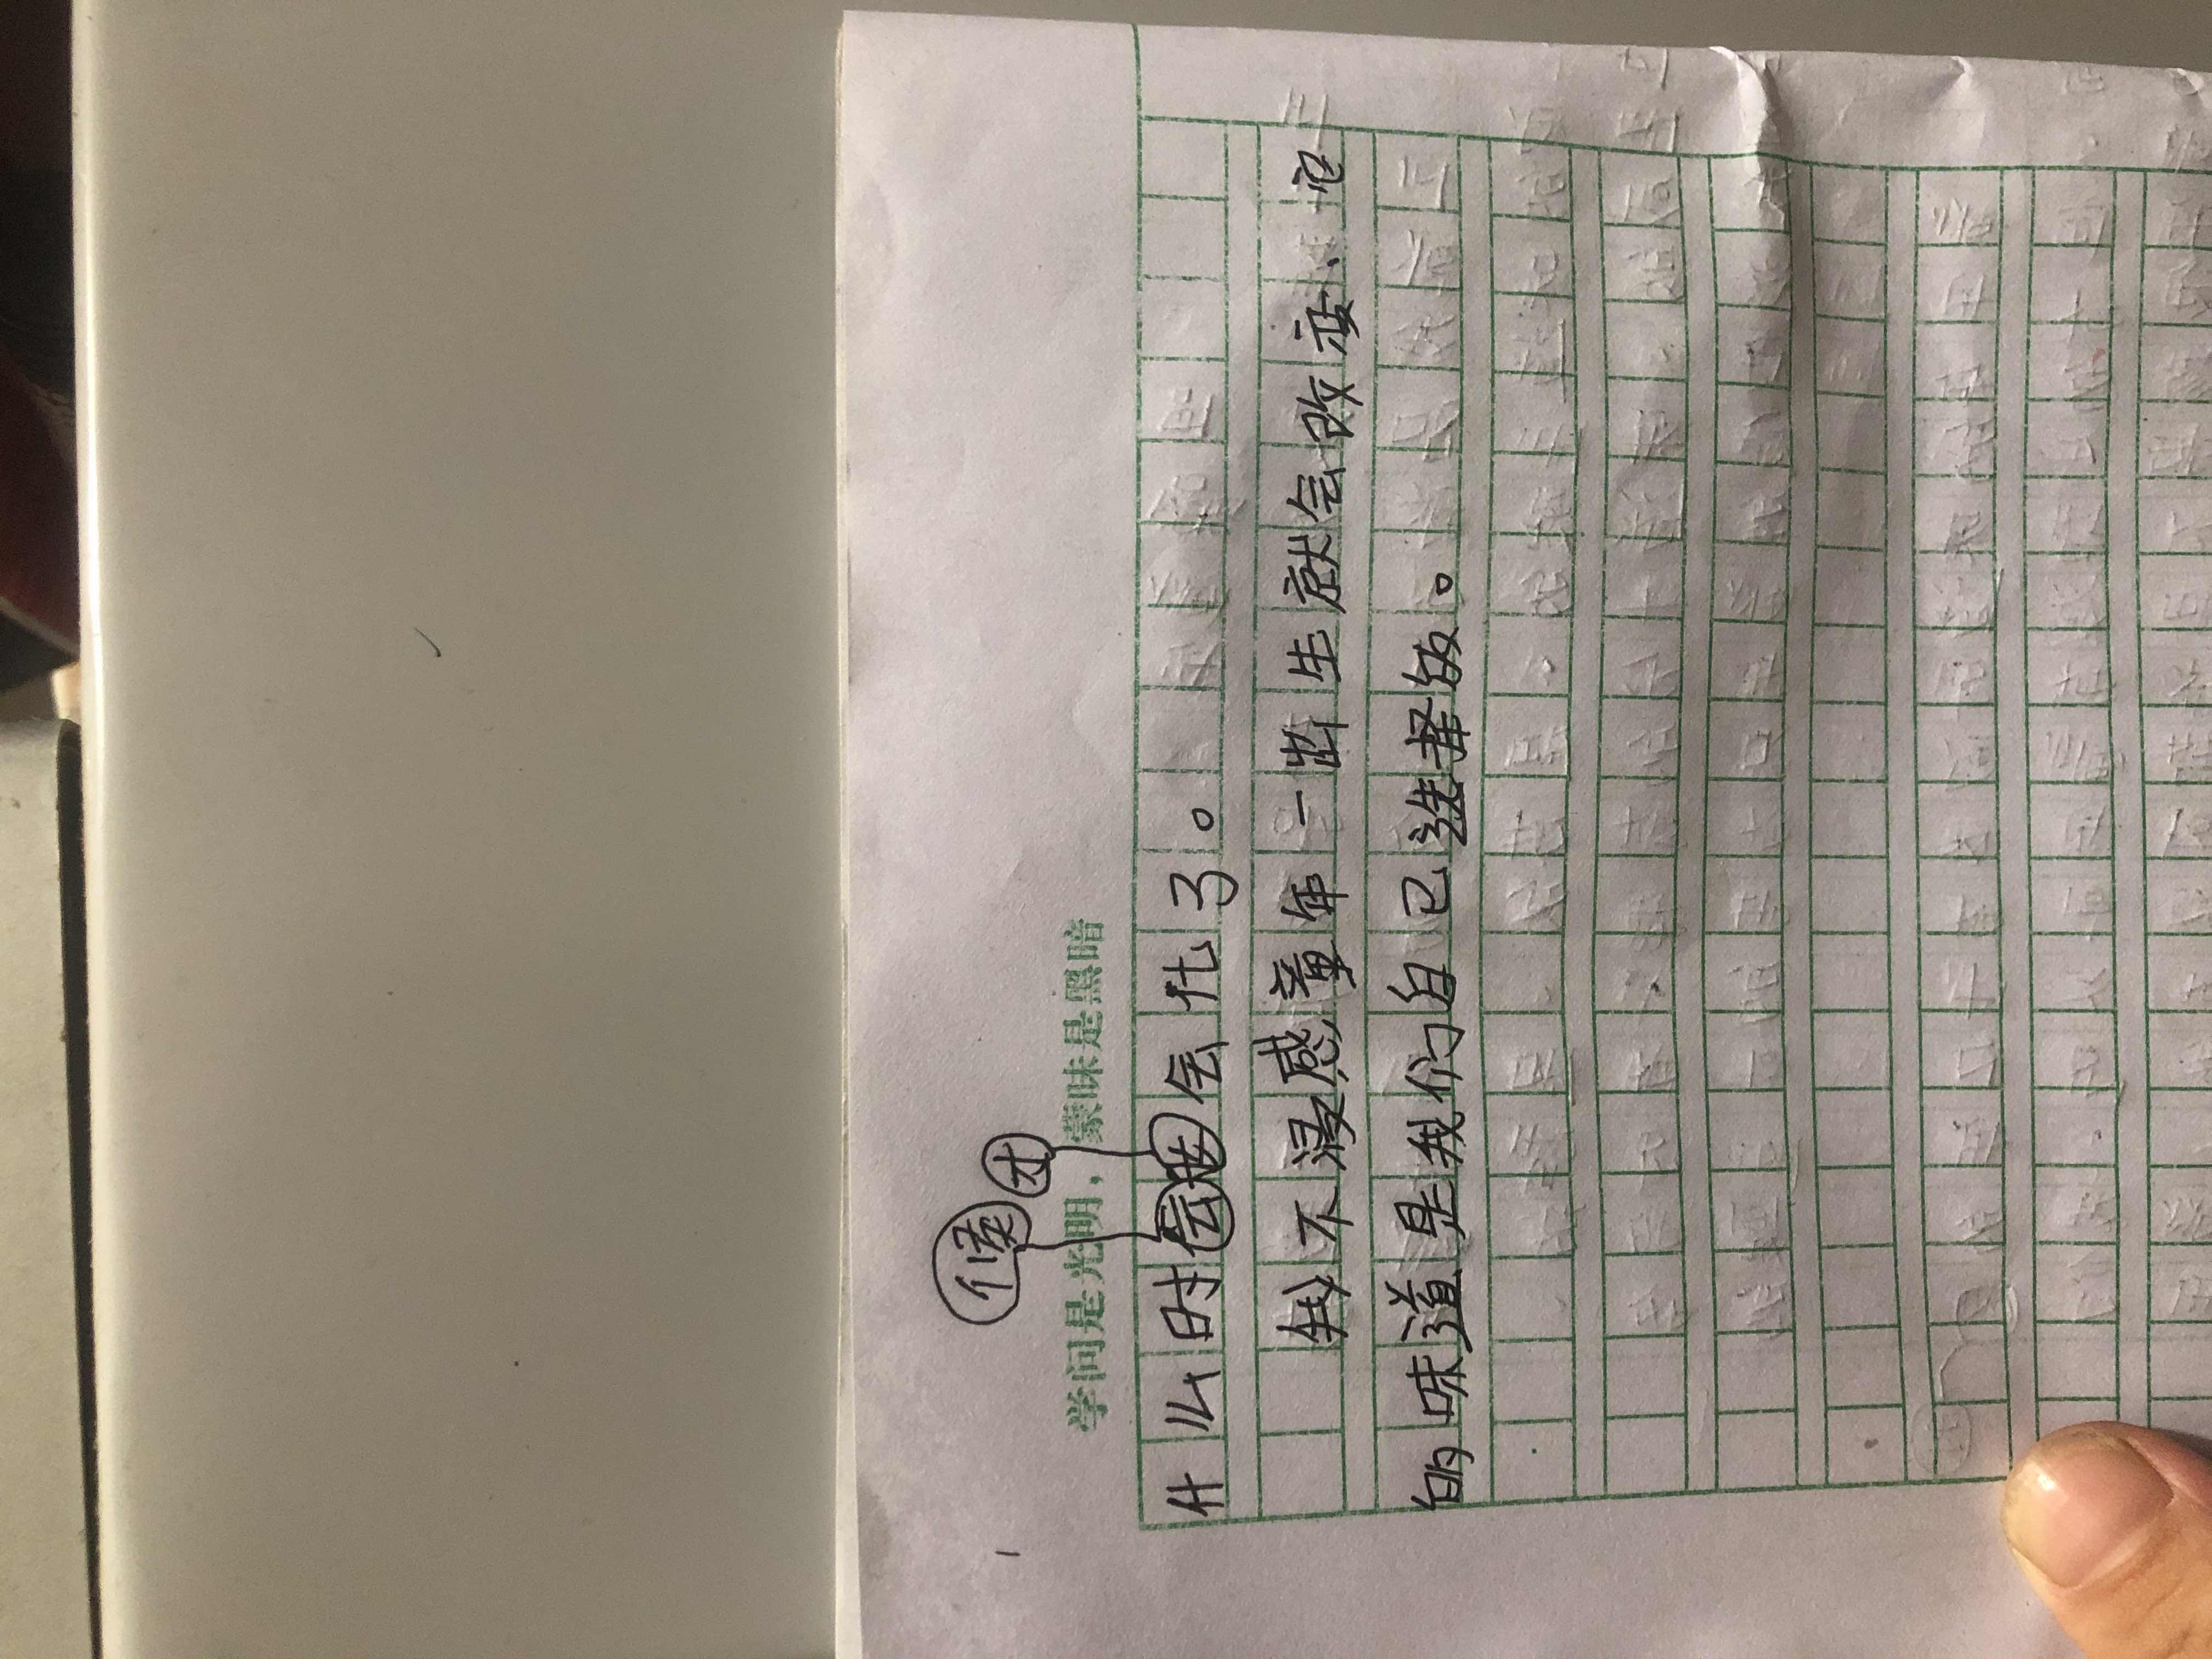 候 才
学问是光明，蒙昧是黑暗
什么时 会化了。
我不 感童年一出生就会改变、它
的味道是我们自己选择饭。